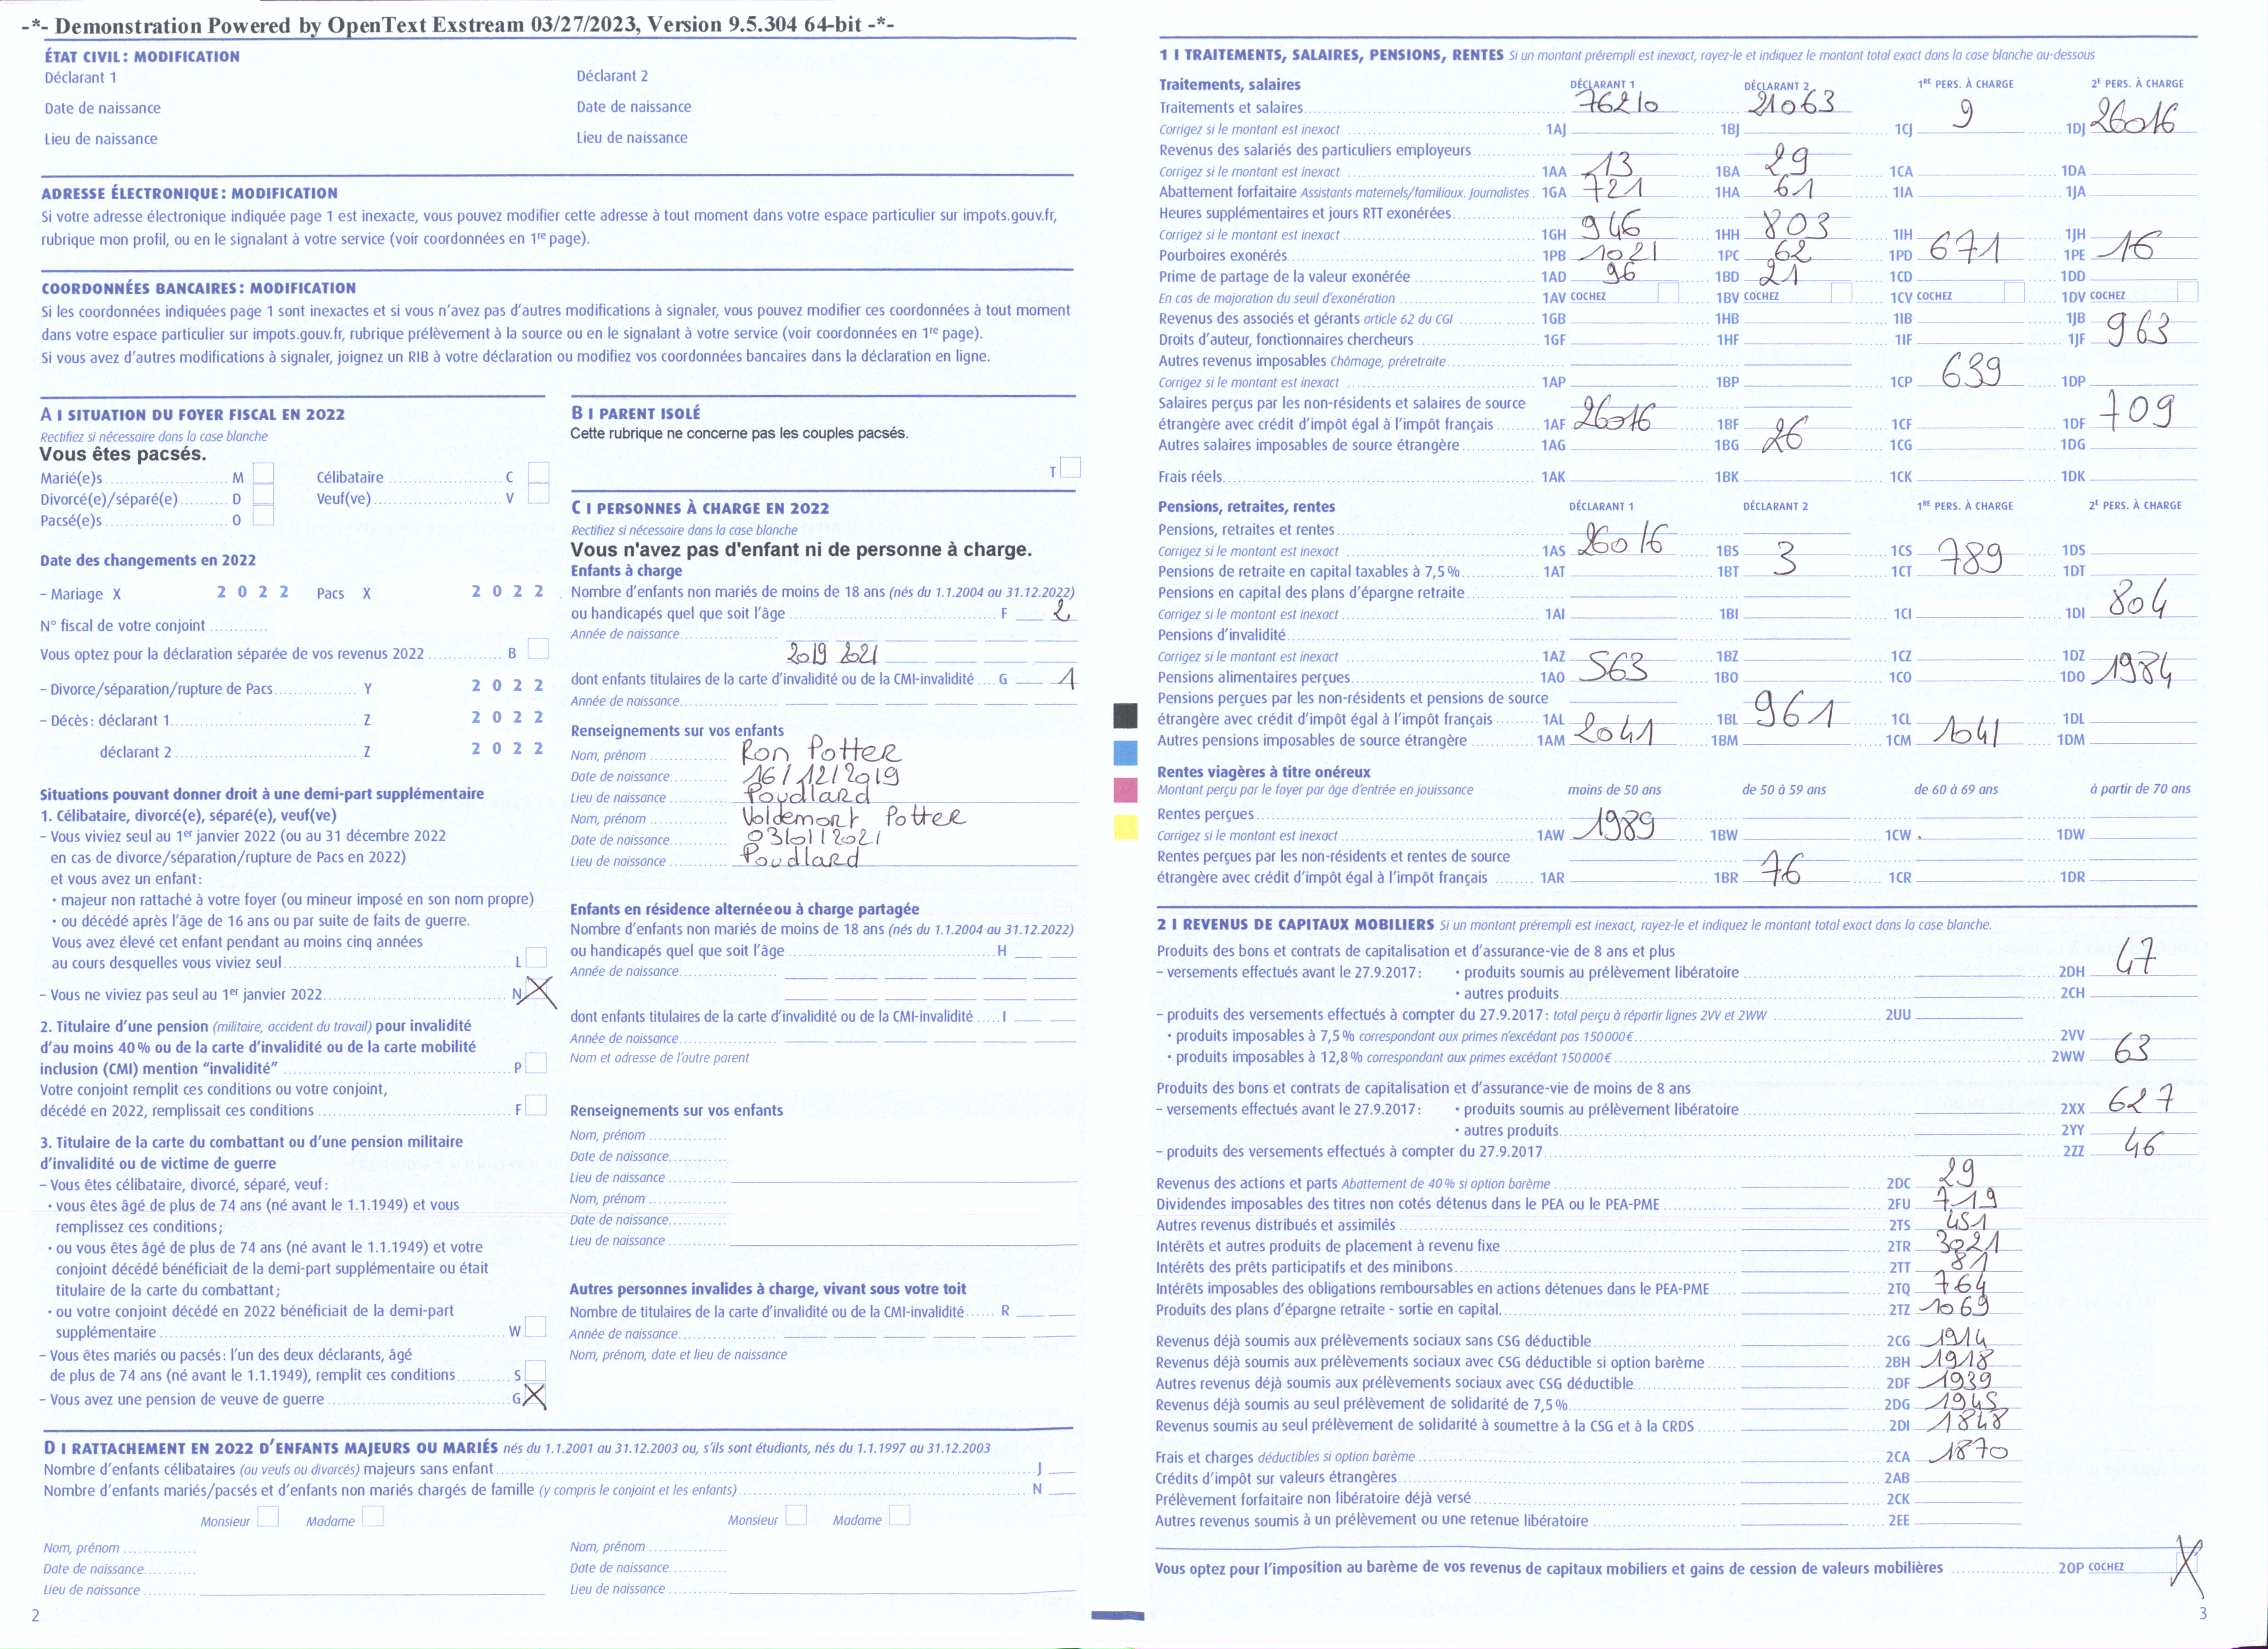 -*- Demonstration Powered by OpenText Exstream 03/27/2023, Version 9.5.304 64-bit -*-
ÉTAT CIVIL : MODIFICATION
Déclarant 1 Déclarant 2
Date de naissance Date de naissance
Lieu de naissance Lieu de naissance
ADRESSE ÉLECTRONIQUE : MODIFICATION
Si votre adresse électronique indiquée page 1 est inexacte, vous pouvez modifier cette adresse à tout moment dans votre espace particulier sur impots.gouv.fr,
rubrique mon profil, ou en le signalant à votre service (voir coordonnées en 1re page).
COORDONNÉES BANCAIRES : MODIFICATION
Si les coordonnées indiquées page 1 sont inexactes et si vous n'avez pas d'autres modifications à signaler, vous pouvez modifier ces coordonnées à tout moment
dans votre espace particulier sur impots.gouv.fr, rubrique prélèvement à la source ou en le signalant à votre service (voir coordonnées en 1re page).
Si vous avez d'autres modifications à signaler, joignez un RIB à votre déclaration ou modifiez vos coordonnées bancaires dans la déclaration en ligne.
A I SITUATION DU FOYER FISCAL EN 2022
Rectifiez si nécessaire dans la case blanche
Vous êtes pacsés.
Marié(e)s M Célibataire C
Divorcé(e)/séparé(e) D Veuf(ve) V
Pacsé(e)s O
Date des changements en 2022
– Mariage X 2 0 2 2 Pacs X 2 0 2 2
N° fiscal de votre conjoint
Vous optez pour la déclaration séparée de vos revenus 2022 B
– Divorce/séparation/rupture de Pacs Y 2 0 2 2
– Décès : déclarant 1 Z 2 0 2 2
déclarant 2 Z 2 0 2 2
Situations pouvant donner droit à une demi-part supplémentaire
1. Célibataire, divorcé(e), séparé(e), veuf(ve)
– Vous viviez seul au 1er janvier 2022 (ou au 31 décembre 2022
en cas de divorce/séparation/rupture de Pacs en 2022)
et vous avez un enfant :
• majeur non rattaché à votre foyer (ou mineur imposé en son nom propre)
• ou décédé après l'âge de 16 ans ou par suite de faits de guerre.
Vous avez élevé cet enfant pendant au moins cinq années
au cours desquelles vous viviez seul L
– Vous ne viviez pas seul au 1er janvier 2022 N X
2. Titulaire d'une pension (militaire, accident du travail) pour invalidité
d'au moins 40 % ou de la carte d'invalidité ou de la carte mobilité
inclusion (CMI) mention "invalidité" P
Votre conjoint remplit ces conditions ou votre conjoint,
décédé en 2022, remplissait ces conditions F
3. Titulaire de la carte du combattant ou d'une pension militaire
d'invalidité ou de victime de guerre
– Vous êtes célibataire, divorcé, séparé, veuf :
• vous êtes âgé de plus de 74 ans (né avant le 1.1.1949) et vous
remplissez ces conditions ;
• ou vous êtes âgé de plus de 74 ans (né avant le 1.1.1949) et votre
conjoint décédé bénéficiait de la demi-part supplémentaire ou était
titulaire de la carte du combattant ;
• ou votre conjoint décédé en 2022 bénéficiait de la demi-part
supplémentaire W
– Vous êtes mariés ou pacsés : l'un des deux déclarants, âgé
de plus de 74 ans (né avant le 1.1.1949), remplit ces conditions S
– Vous avez une pension de veuve de guerre G X
B I PARENT ISOLÉ
Cette rubrique ne concerne pas les couples pacsés.
T
C I PERSONNES À CHARGE EN 2022
Rectifiez si nécessaire dans la case blanche
Vous n'avez pas d'enfant ni de personne à charge.
Enfants à charge
Nombre d'enfants non mariés de moins de 18 ans (nés du 1.1.2004 au 31.12.2022)
ou handicapés quel que soit l'âge F 2
Année de naissance
2019 2021
dont enfants titulaires de la carte d'invalidité ou de la CMI-invalidité G 1
Année de naissance
Renseignements sur vos enfants
Nom, prénom Ron Potter
Date de naissance 16/12/2019
Lieu de naissance Poudlard
Nom, prénom Voldemort Potter
Date de naissance 03/01/2021
Lieu de naissance Poudlard
Enfants en résidence alternée ou à charge partagée
Nombre d'enfants non mariés de moins de 18 ans (nés du 1.1.2004 au 31.12.2022)
ou handicapés quel que soit l'âge H
Année de naissance
dont enfants titulaires de la carte d'invalidité ou de la CMI-invalidité I
Année de naissance
Nom et adresse de l'autre parent
Renseignements sur vos enfants
Nom, prénom
Date de naissance
Lieu de naissance
Nom, prénom
Date de naissance
Lieu de naissance
Autres personnes invalides à charge, vivant sous votre toit
Nombre de titulaires de la carte d'invalidité ou de la CMI-invalidité R
Année de naissance
Nom, prénom, date et lieu de naissance
D I RATTACHEMENT EN 2022 D'ENFANTS MAJEURS OU MARIÉS nés du 1.1.2001 au 31.12.2003 ou, s'ils sont étudiants, nés du 1.1.1997 au 31.12.2003
Nombre d'enfants célibataires (ou veufs ou divorcés) majeurs sans enfant J
Nombre d'enfants mariés/pacsés et d'enfants non mariés chargés de famille (y compris le conjoint et les enfants) N
Monsieur Madame Monsieur Madame
Nom, prénom Nom, prénom
Date de naissance Date de naissance
Lieu de naissance Lieu de naissance
2
1 I TRAITEMENTS, SALAIRES, PENSIONS, RENTES Si un montant prérempli est inexact, rayez-le et indiquez le montant total exact dans la case blanche au-dessous
Traitements, salaires DÉCLARANT 1 DÉCLARANT 2 1RE PERS. À CHARGE 2E PERS. À CHARGE
Traitements et salaires 76210 21063 9 26016
Corrigez si le montant est inexact 1AJ 1BJ 1CJ 1DJ
Revenus des salariés des particuliers employeurs
Corrigez si le montant est inexact 1AA 13 1BA 29 1CA 1DA
Abattement forfaitaire Assistants maternels/familiaux. Journalistes 1GA 721 1HA 61 1IA 1JA
Heures supplémentaires et jours RTT exonérées
Corrigez si le montant est inexact 1GH 946 1HH 803 1IH 1JH
Pourboires exonérés 1PB 1021 1PC 62 1PD 671 1PE 16
Prime de partage de la valeur exonérée 1AD 96 1BD 21 1CD 1DD
En cas de majoration du seuil d'exonération 1AV COCHEZ 1BV COCHEZ 1CV COCHEZ 1DV COCHEZ
Revenus des associés et gérants article 62 du CGI 1GB 1HB 1IB 1JB
Droits d'auteur, fonctionnaires chercheurs 1GF 1HF 1IF 1JF 963
Autres revenus imposables Chômage, préretraite
Corrigez si le montant est inexact 1AP 1BP 1CP 639 1DP
Salaires perçus par les non-résidents et salaires de source
étrangère avec crédit d'impôt égal à l'impôt français 1AF 26016 1BF 1CF 1DF 709
Autres salaires imposables de source étrangère 1AG 1BG 26 1CG 1DG
Frais réels 1AK 1BK 1CK 1DK
Pensions, retraites, rentes DÉCLARANT 1 DÉCLARANT 2 1RE PERS. À CHARGE 2E PERS. À CHARGE
Pensions, retraites et rentes
Corrigez si le montant est inexact 1AS 26016 1BS 3 1CS 789 1DS
Pensions de retraite en capital taxables à 7,5 % 1AT 1BT 1CT 1DT
Pensions en capital des plans d'épargne retraite
Corrigez si le montant est inexact 1AI 1BI 1CI 1DI 804
Pensions d'invalidité
Corrigez si le montant est inexact 1AZ 563 1BZ 1CZ 1DZ 1984
Pensions alimentaires perçues 1AO 1BO 1CO 1DO
Pensions perçues par les non-résidents et pensions de source
étrangère avec crédit d'impôt égal à l'impôt français 1AL 1BL 961 1CL 1DL
Autres pensions imposables de source étrangère 1AM 2041 1BM 1CM 1041 1DM
Rentes viagères à titre onéreux
Montant perçu par le foyer par âge d'entrée en jouissance moins de 50 ans de 50 à 59 ans de 60 à 69 ans à partir de 70 ans
Rentes perçues
Corrigez si le montant est inexact 1AW 1989 1BW 1CW 1DW
Rentes perçues par les non-résidents et rentes de source
étrangère avec crédit d'impôt égal à l'impôt français 1AR 1BR 76 1CR 1DR
2 I REVENUS DE CAPITAUX MOBILIERS Si un montant prérempli est inexact, rayez-le et indiquez le montant total exact dans la case blanche.
Produits des bons et contrats de capitalisation et d'assurance-vie de 8 ans et plus
– versements effectués avant le 27.9.2017 : • produits soumis au prélèvement libératoire 2DH 47
• autres produits 2CH
– produits des versements effectués à compter du 27.9.2017 : total perçu à répartir lignes 2VV et 2WW 2UU
• produits imposables à 7,5 % correspondant aux primes n'excédant pas 150 000 € 2VV
• produits imposables à 12,8 % correspondant aux primes excédant 150 000 € 2WW 63
Produits des bons et contrats de capitalisation et d'assurance-vie de moins de 8 ans
– versements effectués avant le 27.9.2017 : • produits soumis au prélèvement libératoire 2XX 627
• autres produits 2YY
– produits des versements effectués à compter du 27.9.2017 2ZZ 46
Revenus des actions et parts Abattement de 40 % si option barème 2DC 29
Dividendes imposables des titres non cotés détenus dans le PEA ou le PEA-PME 2FU 719
Autres revenus distribués et assimilés 2TS 451
Intérêts et autres produits de placement à revenu fixe 2TR 3021
Intérêts des prêts participatifs et des minibons 2TT 81
Intérêts imposables des obligations remboursables en actions détenues dans le PEA-PME 2TQ 764
Produits des plans d'épargne retraite - sortie en capital 2TZ 1069
Revenus déjà soumis aux prélèvements sociaux sans CSG déductible 2CG 1914
Revenus déjà soumis aux prélèvements sociaux avec CSG déductible si option barème 2BH 1918
Autres revenus déjà soumis aux prélèvements sociaux avec CSG déductible 2DF 1939
Revenus déjà soumis au seul prélèvement de solidarité de 7,5 % 2DG 1945
Revenus soumis au seul prélèvement de solidarité à soumettre à la CSG et à la CRDS 2DI 1848
Frais et charges déductibles si option barème 2CA 1870
Crédits d'impôt sur valeurs étrangères 2AB
Prélèvement forfaitaire non libératoire déjà versé 2CK
Autres revenus soumis à un prélèvement ou une retenue libératoire 2EE
Vous optez pour l'imposition au barème de vos revenus de capitaux mobiliers et gains de cession de valeurs mobilières 2OP COCHEZ X
3